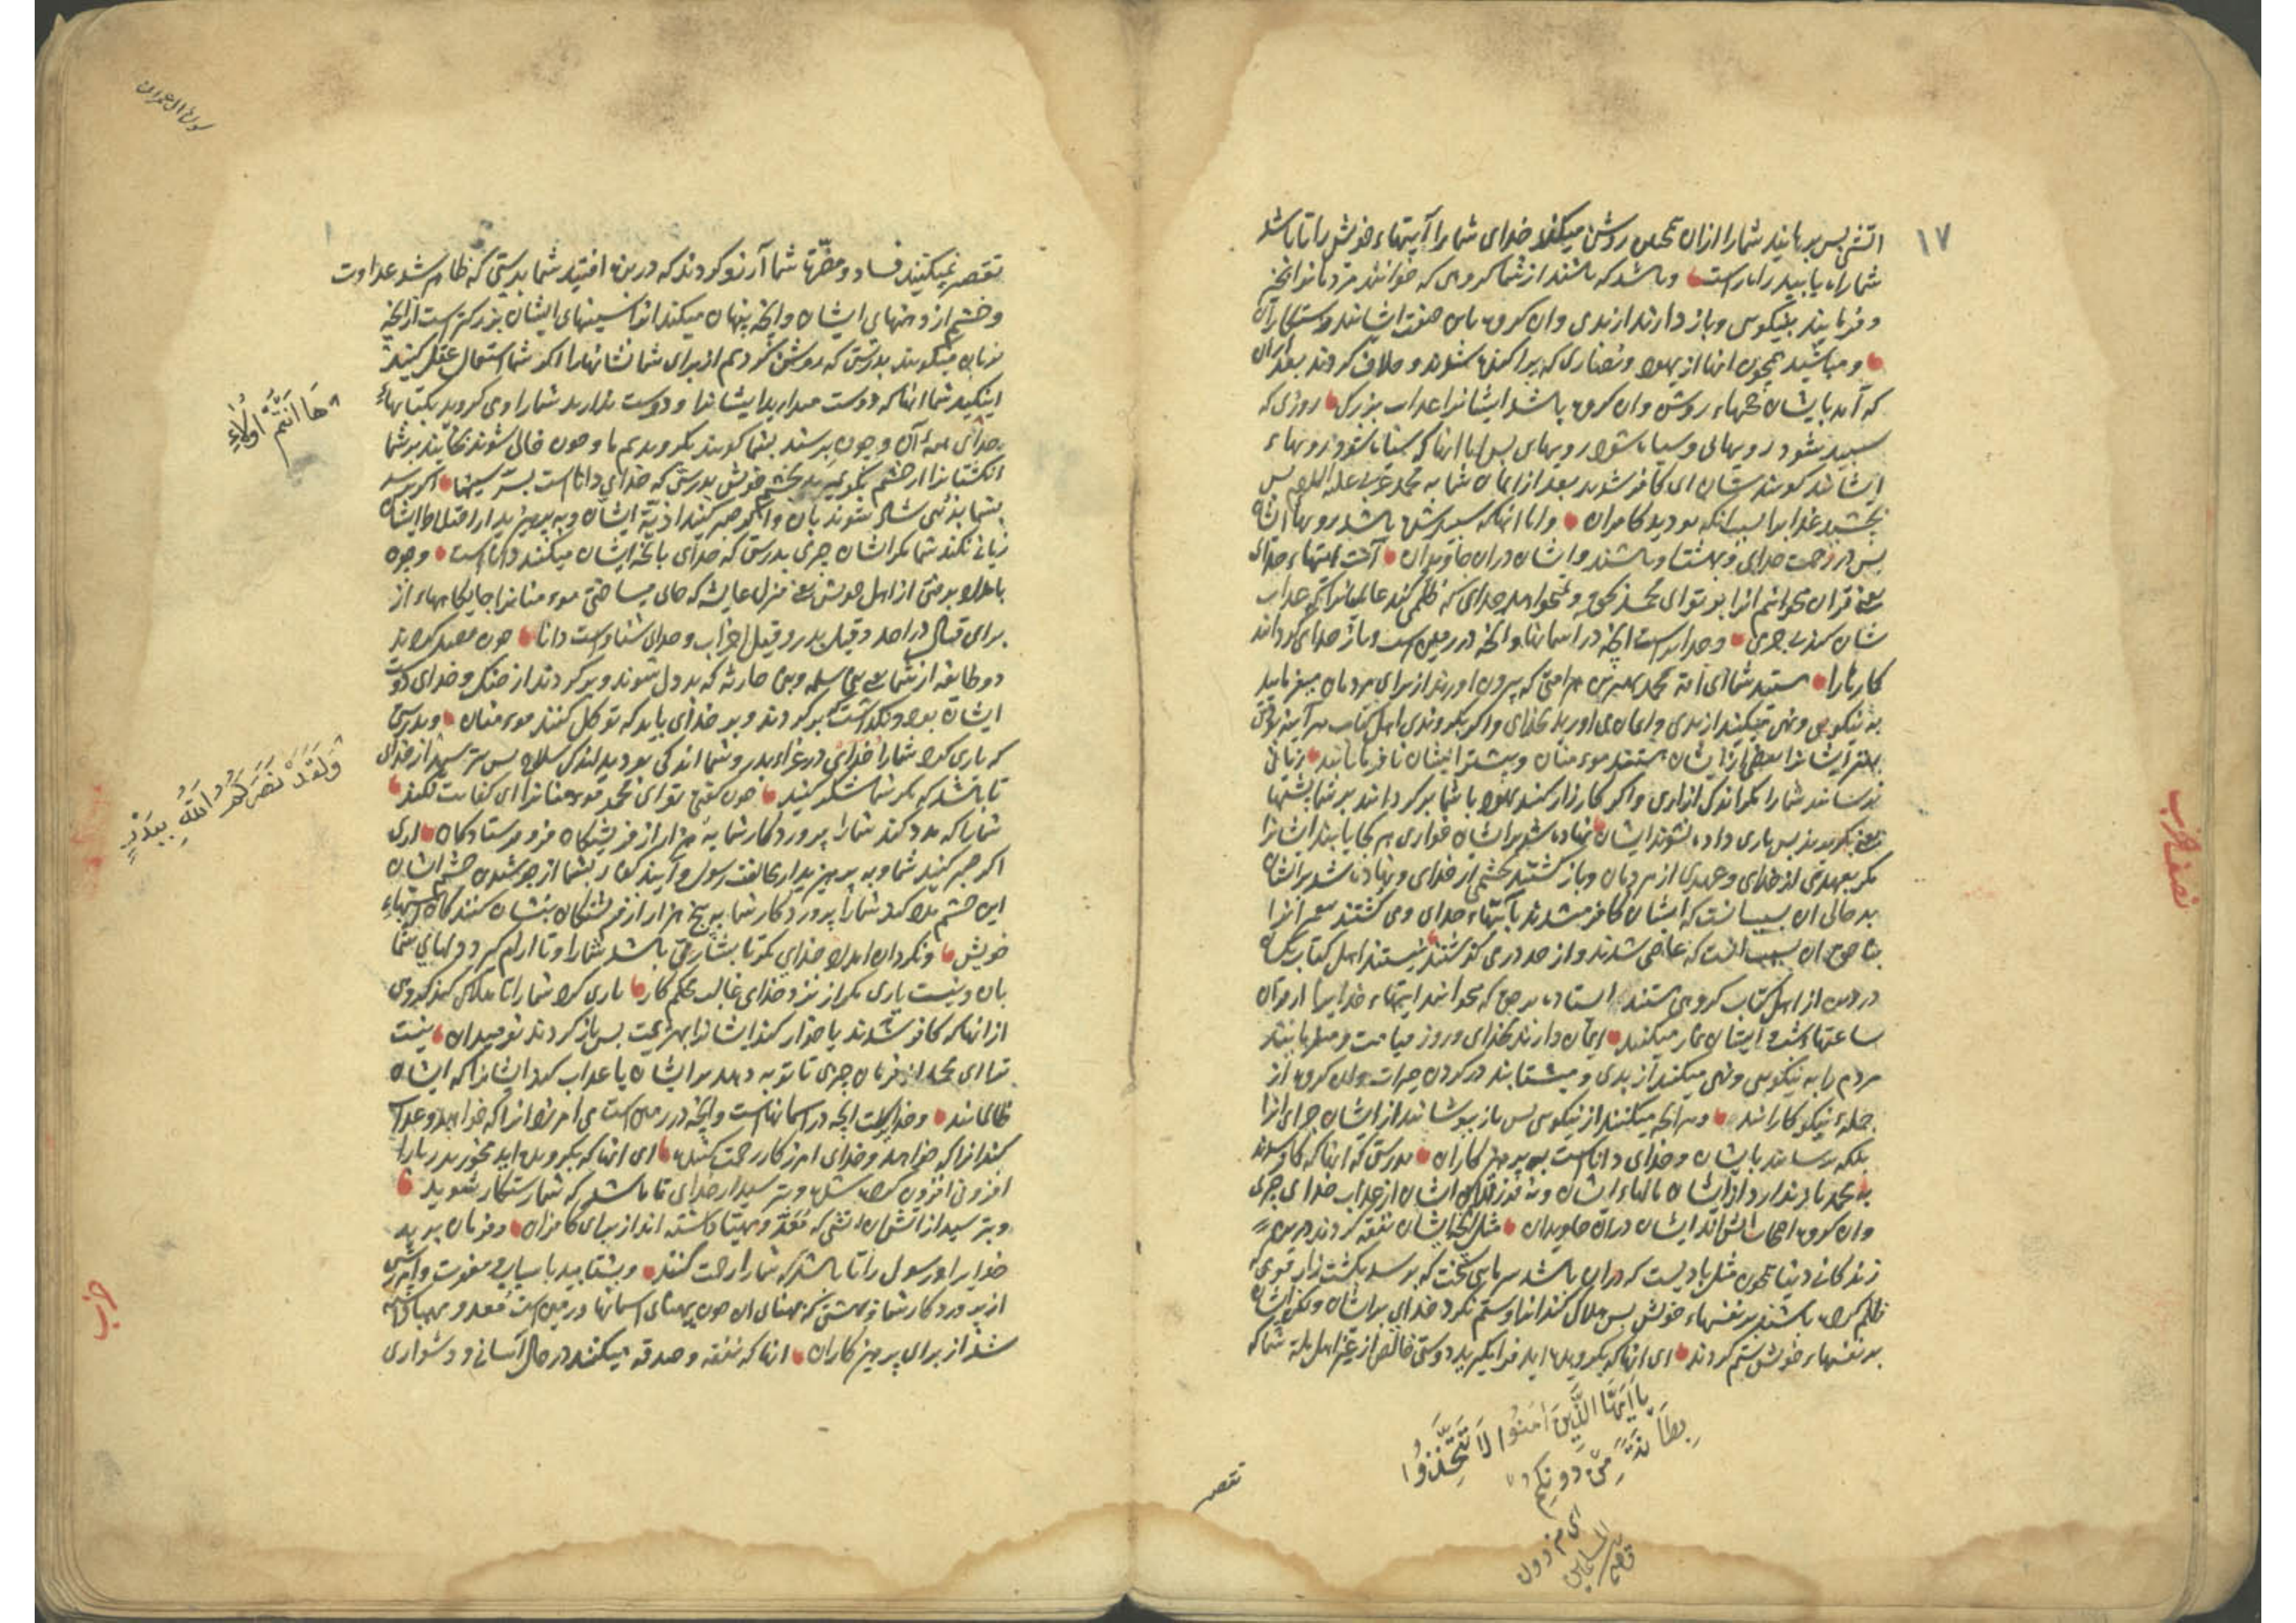 ۱۷
آتش پس برهانید شما را از آن همچنین روشن میکند خدای شما را آیتهاء خویش را تا باشد
شما راه یابید راه راست و باشد که باشند از شما گروهی که خوانند مردمانرا بخیر
و فرمایند بنیکویی و باز دارند از بدی و آن گروه باین صفت ایشانند رستگاران
و مباشید همچون آنها از یهود و نصاری که پراکنده شوند و خلاف کردند بعد از آن
که آمد بایشان حجتهاء روشن و آن گروه باشد ایشانرا عذاب بزرگ روزی که
سپید شود رویهای و سیاه شود رویهای پس اما آنها که سیاه شود رویهاء
ایشانند گویند ایشان ای کافر شوید بعد از ایمان شما به محمد عربی علیه السلام پس
بچشید عذاب را بسبب آنکه بودید کافران و اما آنها که سپید شده باشد رویهاء ایشان
پس در رحمت خدای و بهشت او باشند و ایشان در آن جاویدان آنست آیتهاء خدای
یعنی قرآن میخوانم آنرا بر تو ای محمد بحق و نمیخواهد خدای که ظلمی کند عالمیانرا که عذاب
شان کند بی جرمی و خدایراست آنچه در آسمانها و آنچه در زمین است و باز خدای گرداند
کارها را هستید شما ای امة محمد بهترین هر امتی که بیرون آورند از برای مردمان میفرمایید
به نیکویی و نهی میکنید از بدی و ایمان می آورید بخدای و اگر بگروندی اهل کتاب هر آینه بودی
بهتر ایشانرا بعضی از ایشان هستند مومنان و بیشتر ایشان نافرمانانند زیانی
نرسانند شما را مگر اندکی آزاری و اگر کارزار کنند یهود با شما برگردانند بر شما پشتها
یعنی بگریزند پس یاری داده نشوند ایشان نهاده شد بر ایشان خواری هر کجا یابند ایشانرا
مگر بعهدی از خدای و عهدی از مردمان و باز گشتند بخشمی از خدای و نهاده شد بر ایشان
بد حالی آن بسبب آنست که ایشان کافر میشدند بآیتهاء خدای و می کشتند پیغمبرانرا
بناحق آن بسبب آنست که عاصی شدند و از حد در می گذشتند نیستند اهل کتاب یکسان
در دین از اهل کتاب گروهی هستند ایستاده بر حق که میخوانند آیتهاء خدایرا از قرآن
ساعتهاء شب و ایشان نماز میکنند ایمان دارند بخدای و روز قیامت و میفرمایند
مردم را به نیکویی و نهی میکنند از بدی و میشتابند در کردن خیرات و این گروه از
جملهء نیکوکارانند و هر آنچه میکنند از نیکویی پس باز نپوشانند از ایشان جزای آنرا
بلکه برسانند بایشان و خدای داناست به پرهیزکاران بدرستی که آنها که کافر شدند
به محمد باز ندارد از ایشان مالهاء ایشان و نه فرزندان ایشان از عذاب خدای چیزی
و آن گروه اصحاب آتش‌اند ایشان در آن جاویدان مثل آنچه ایشان نفقه کردند در این
زندگانی دنیا همچون مثل بادیست که در آن باشد سرمای سخت که برسد بکشت‌زار قومی که
ظلم کرده باشند بر نفسهاء خویش پس هلاک کند آنرا و ستم نکرد خدای بر ایشان و لکن ایشان
بر نفسهاء خویش ستم کردند ای آنها که بگرویده اید فرا مگیرید دوستی خالص از غیر اهل ملة شما که
يَا أَيُّهَا الَّذِينَ آمَنُوا لَا تَتَّخِذُوا
بِطَانَةً مِنْ دُونِكُمْ
ای من دون
المسلمین
تقصیر
نصف حزب
سورة آل عمران
تقصیر نمیکنند فساد و مضرّتها شما آرزو کردند که در رنج افتید شما بدرستی که ظاهر شد عداوت
و خشم از دهنهای ایشان و آنچه پنهان میکند آنرا سینهای ایشان بزرگتر است از آنچه
بزبان میگویند بدرستی که روشن کردیم از برای شما نشانها را اگر شما استعمال عقل کنید
اینکید شما آنها که دوست میدارید ایشانرا و دوست ندارند شما را و می گروید بکتابهاء
خدای همهء آن و چون برسند بشما گویند بگرویدیم ما و چون خالی شوند بخایند بر شما
انگشتانرا از خشم بگو بمیرید بخشم خویش بدرستی که خدای داناست بسرّ سینها اگر برسد
بشما بدئی شاد شوند بآن و اگر صبر کنید اذیّة ایشان و به پرهیزید از اختلاط ایشان
زیانی نکند شما مکر ایشان چیزی بدرستی که خدای بآنچه ایشان میکنند داناست و چون
بامداد برفتی از اهل خویش یعنی منزل عایشه که جای میساختی مومنانرا جایگاههاء از
برای قتال در احد و قیل بدر و قیل احزاب و خدای شنواست دانا چون قصد کردند
دو طایفه از شما یعنی بنی سلمه و بنی حارثه که بد دل شوند و برگردند از جنگ و خدای دوست
ایشان بود و نگذاشت که برگردند و بر خدای باید که توکل کنند مومنان و بدرستی
که یاری کرد شما را خدای در غزاء بدر و شما اندکی بودید اندک سلاح پس بترسید از خدای
تا باشد که مگر شما شکر کنید چون گفتی تو ای محمد مومنانرا ای کفایت نکند
شما را که مدد کند شما را پروردگار شما به سه هزار از فریشتگان فرو فرستادگان آری
اگر صبر کنید شما و به پرهیزید از مخالفت رسول و آیند کفار بشما از جوشیدن خشم ایشان
این خشم مدد کند شما را پروردگار شما به پنج هزار از فرشتگان نشان کنندگان اسپهاء
خویش و نگردان امداد خدای مگر تا بشارتی باشد شما را و تا آرام گیرد دلهای شما
بآن و نیست یاری مگر از نزد خدای غالب محکم کار یاری کرد شما را تا هلاک کند گروهی
از آنها که کافر شدند یا خوار کند ایشانرا بهزیمت پس باز گردند نومیدان نیست
ترا ای محمد از فرمان چیزی تا توبه دهد بر ایشان یا عذاب کند ایشانرا که ایشان
ظالمانند و خدایراست آنچه در آسمانهاست و آنچه در زمین است می آمرزد آنرا که خواهد و عذاب
کند آنرا که خواهد و خدای آمرزگار رحمت کننده ای آنها که بگرویده اید مخورید ربا را
افزونی افزون کرده شده و بترسید از خدای تا باشد که شما رستگار شوید
و بترسید از آتش آن آتشی که مُعَدّ و مهیّا داشته اند از برای کافران و فرمان برید
خدایرا و رسول را تا باشد که شما را رحمت کنند و بشتابید باسباب مغفرت و آمرزش
از پروردگار شما و بهشتی که پهنای آن چون پهنای آسمانها و زمین است مُعد و مهیا داشته
شد از برای پرهیزکاران آنها که نفقه و صدقه میکنند در حال آسانی و دشواری
هَا أَنْتُمْ أُولَاءِ
وَلَقَدْ نَصَرَكُمُ اللهُ بِبَدْرٍ
حزب